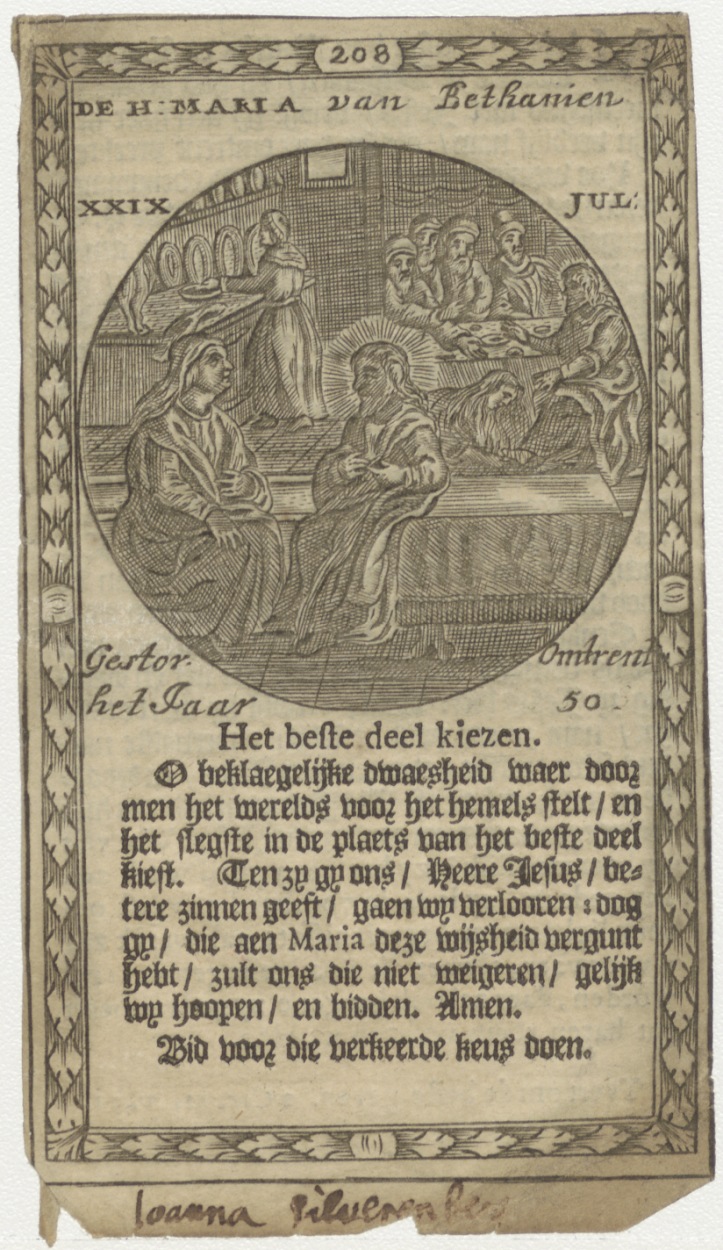 208
DE H: MARIA van Bethanien
XXIX JUL:
Gestor. Omtrent
het Jaar 50.
Het beste deel kiezen.
O beklaegelijke dwaesheid waer door
men het werelds voor het hemels stelt / en
het slegste in de plaets van het beste deel
kiest. Ten zy gy ons / Heere Jesus / be=
tere zinnen geeft / gaen wy verlooren : dog
gy / die aen Maria deze wijsheid vergunt
hebt / zult ons die niet weigeren / gelijk
wy hoopen / en bidden. Amen.
Bid voor die verkeerde keus doen.
Joanna